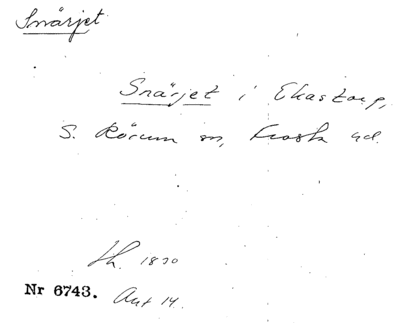 Snärjet
Snärjet i Ekastorp,
S. Rörum sn, Frosta hd.
1830
Nr 6743. Akt 14.